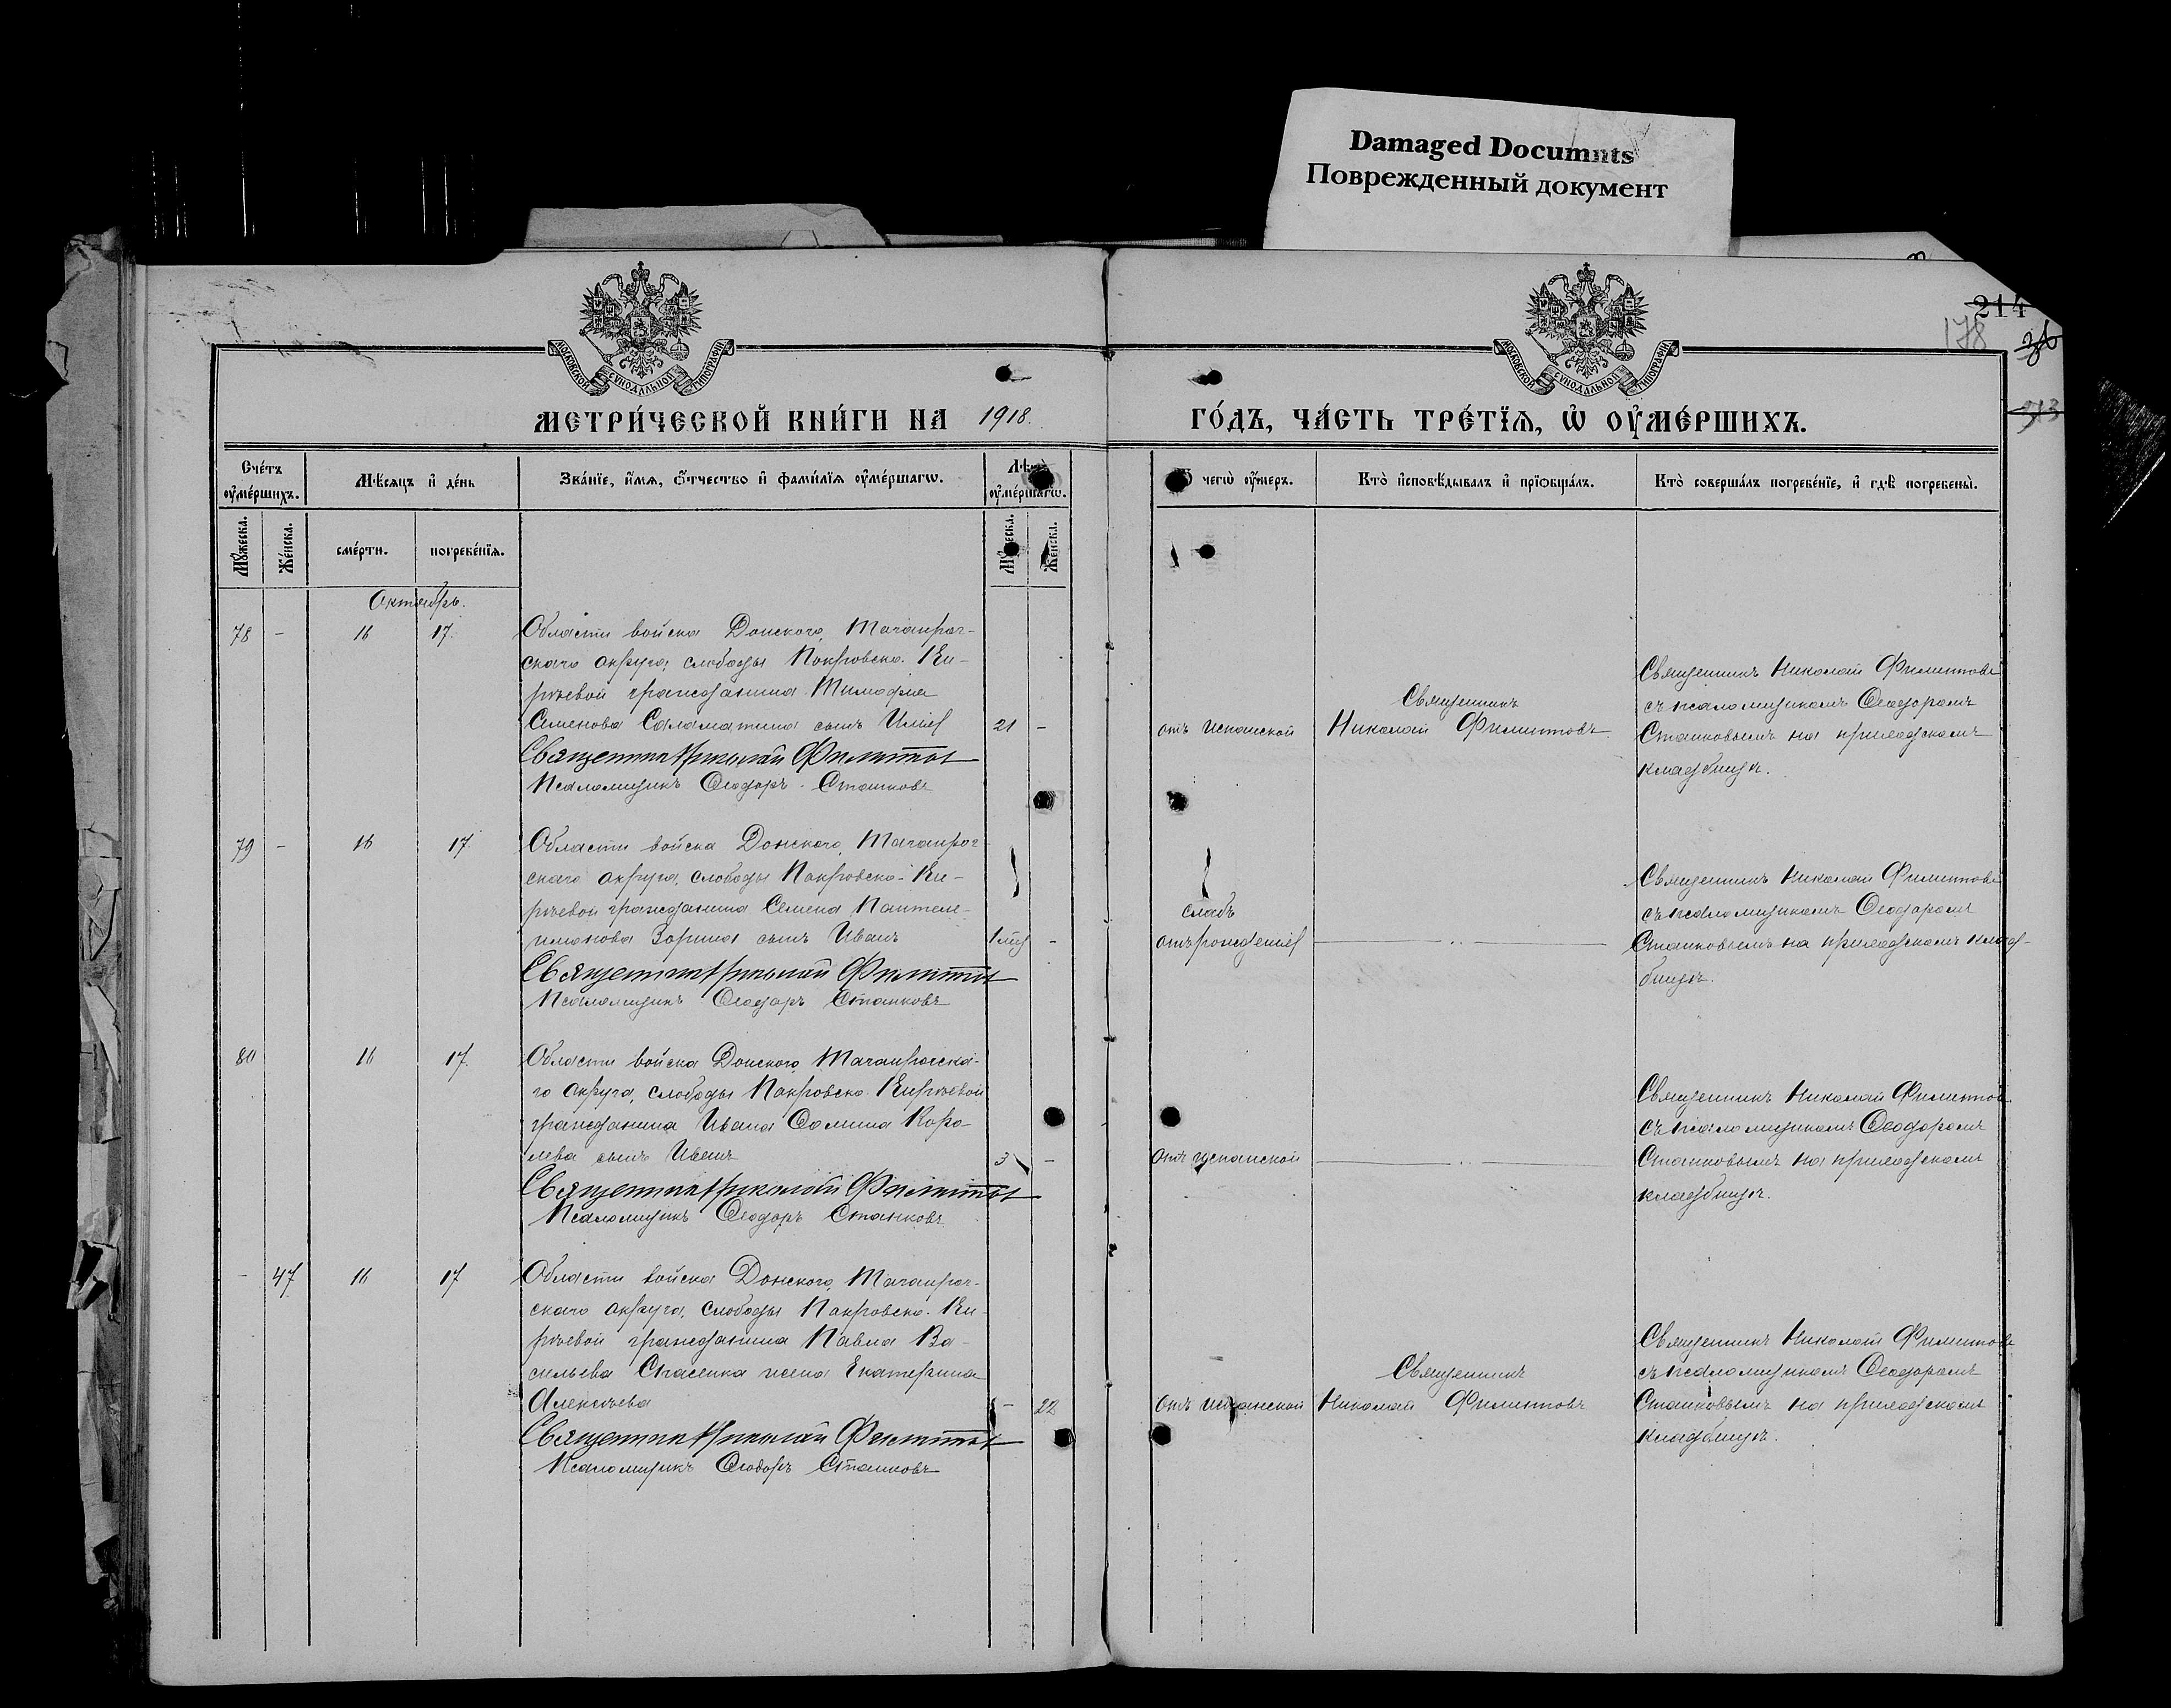 Damaged Documnts
Поврежденный документ
214
178
36
313
МОСКОВСКОЙ СѴНОДАЛЬНОЙ ТИПОГРАФІИ
МОСКОВСКОЙ СѴНОДАЛЬНОЙ ТИПОГРАФІИ
МЕТРИ́ЧЕСКОЙ КНИ́ГИ НА 1918. ГО́ДЪ, ЧА́СТЬ ТРЕ́ТЇѦ, Ѡ҆ ОУ҆МЕ́РШИХЪ.
Сче́тъ оу҆ме́ршихъ.
Мѣ́сѧцъ и҆ де́нь
Зва́нїе, и҆́мѧ, ѻ҆́тчество и҆ фами́лїѧ оу҆ме́ршагѡ.
оу҆ме́ршагѡ.
чегѡ̀ оу҆́меръ.
Кто̀ и҆сповѣ́дывалъ и҆ прїѡбща́лъ.
Кто̀ соверша́лъ погребе́нїе, и҆ гдѣ̀ погребены̀.
Мꙋ́жеска.
Же́нска.
сме́рти.
погребе́нїѧ.
Октябрь.
78 - 16 17.
Области войска Донского, Таганрог-
скаго округа, слободы Покровско-Ки-
рѣевой гражданина Тимофея
Семенова Саламатина сынъ Илія 21 -
Священникъ Николай Филиппов
Псаломщикъ Ѳеодоръ Станковъ
отъ испанской
Священникъ
Николай Филипповъ
Священникъ Николай Филипповъ
съ псаломщикомъ Ѳеодоромъ
Станковымъ на приходскомъ
кладбищѣ.
79 - 16 17.
Области войска Донского, Таганрог-
скаго округа, слободы Покровско-Ки-
рѣевой гражданина Семена Пантеле-
имонова Зорина сынъ Иванъ -
Священникъ Николай Филиппов
Псаломщикъ Ѳеодоръ Станковъ
слабъ
отъ рожденія
Священникъ Николай Филипповъ
съ псаломщикомъ Ѳеодоромъ
Станковымъ на приходскомъ клад-
бищѣ.
80 16 17.
Области войска Донского, Таганрогска-
го округа, слободы Покровско-Кирѣевой
гражданина Ивана Ѳомина Коро-
лева сынъ Иванъ 3 -
Священникъ Николай Филиппов
Псаломщикъ Ѳеодоръ Станковъ
отъ испанской
Священникъ Николай Филиппов
съ псаломщикомъ Ѳеодоромъ
Станковымъ на приходскомъ
кладбищѣ.
- 47 16 17
Области войска Донского, Таганрог-
скаго округа, слободы Покровско-Ки-
рѣевой гражданина Павла Ва-
сильева Спасенка жена Екатерина
Алексѣева - 22
Священникъ Николай Филиппов
Псаломщикъ Ѳеодоръ Станковъ
отъ испанской
Священникъ
Николай Филипповъ
Священникъ Николай Филипповъ
съ псаломщикомъ Ѳеодоромъ
Станковымъ на приходскомъ
кладбищѣ.